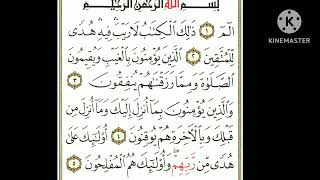 بِسْمِ اللَّهِ الرَّحْمَنِ الرَّحِيمِ
الٓمٓ ١ ذَٰلِكَ ٱلْكِتَٰبُ لَا رَيْبَ فِيهِ هُدًى
لِّلْمُتَّقِينَ ٢ ٱلَّذِينَ يُؤْمِنُونَ بِٱلْغَيْبِ وَيُقِيمُونَ
ٱلصَّلَوٰةَ وَمِمَّا رَزَقْنَٰهُمْ يُنفِقُونَ ٣
وَٱلَّذِينَ يُؤْمِنُونَ بِمَآ أُنزِلَ إِلَيْكَ وَمَآ أُنزِلَ مِن
قَبْلِكَ وَبِٱلْءَاخِرَةِ هُمْ يُوقِنُونَ ٤ أُو۟لَٰٓئِكَ عَلَىٰ
هُدًى مِّن رَّبِّهِمْ ۖ وَأُو۟لَٰٓئِكَ هُمُ ٱلْمُفْلِحُونَ ٥
KINEMASTER